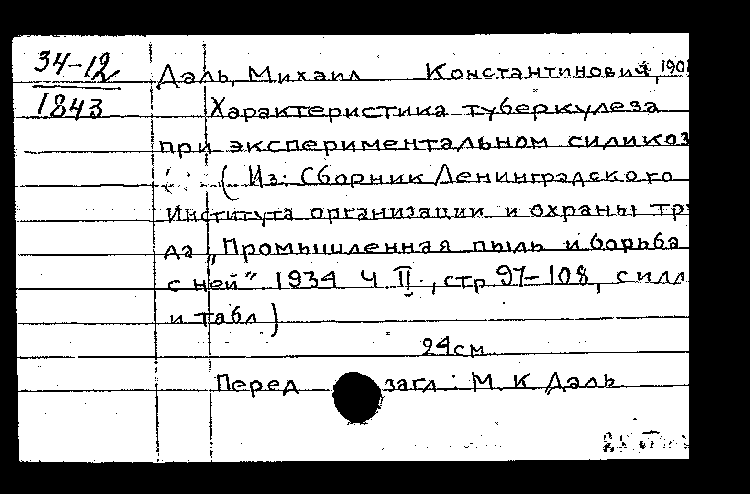 34-12
1843
Даль, Михаил Константинович, 190
Характеристика туберкулеза
при экспериментальном силикоз
(Из: Сборник Ленинградского
Института организации и охраны тру
да „Промышленная пыль и борьба
с ней" 1934 Ч II, стр 97-108, с илл
и табл)
24см
Перед загл: М. К Даль